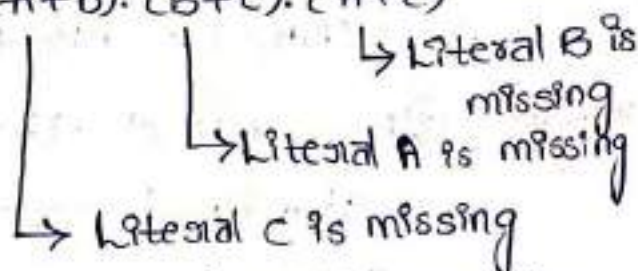 A+B). (B+C). (A+C)
↳ Literal B is
missing
↳ Literal A is missing
↳ Literal C is missing